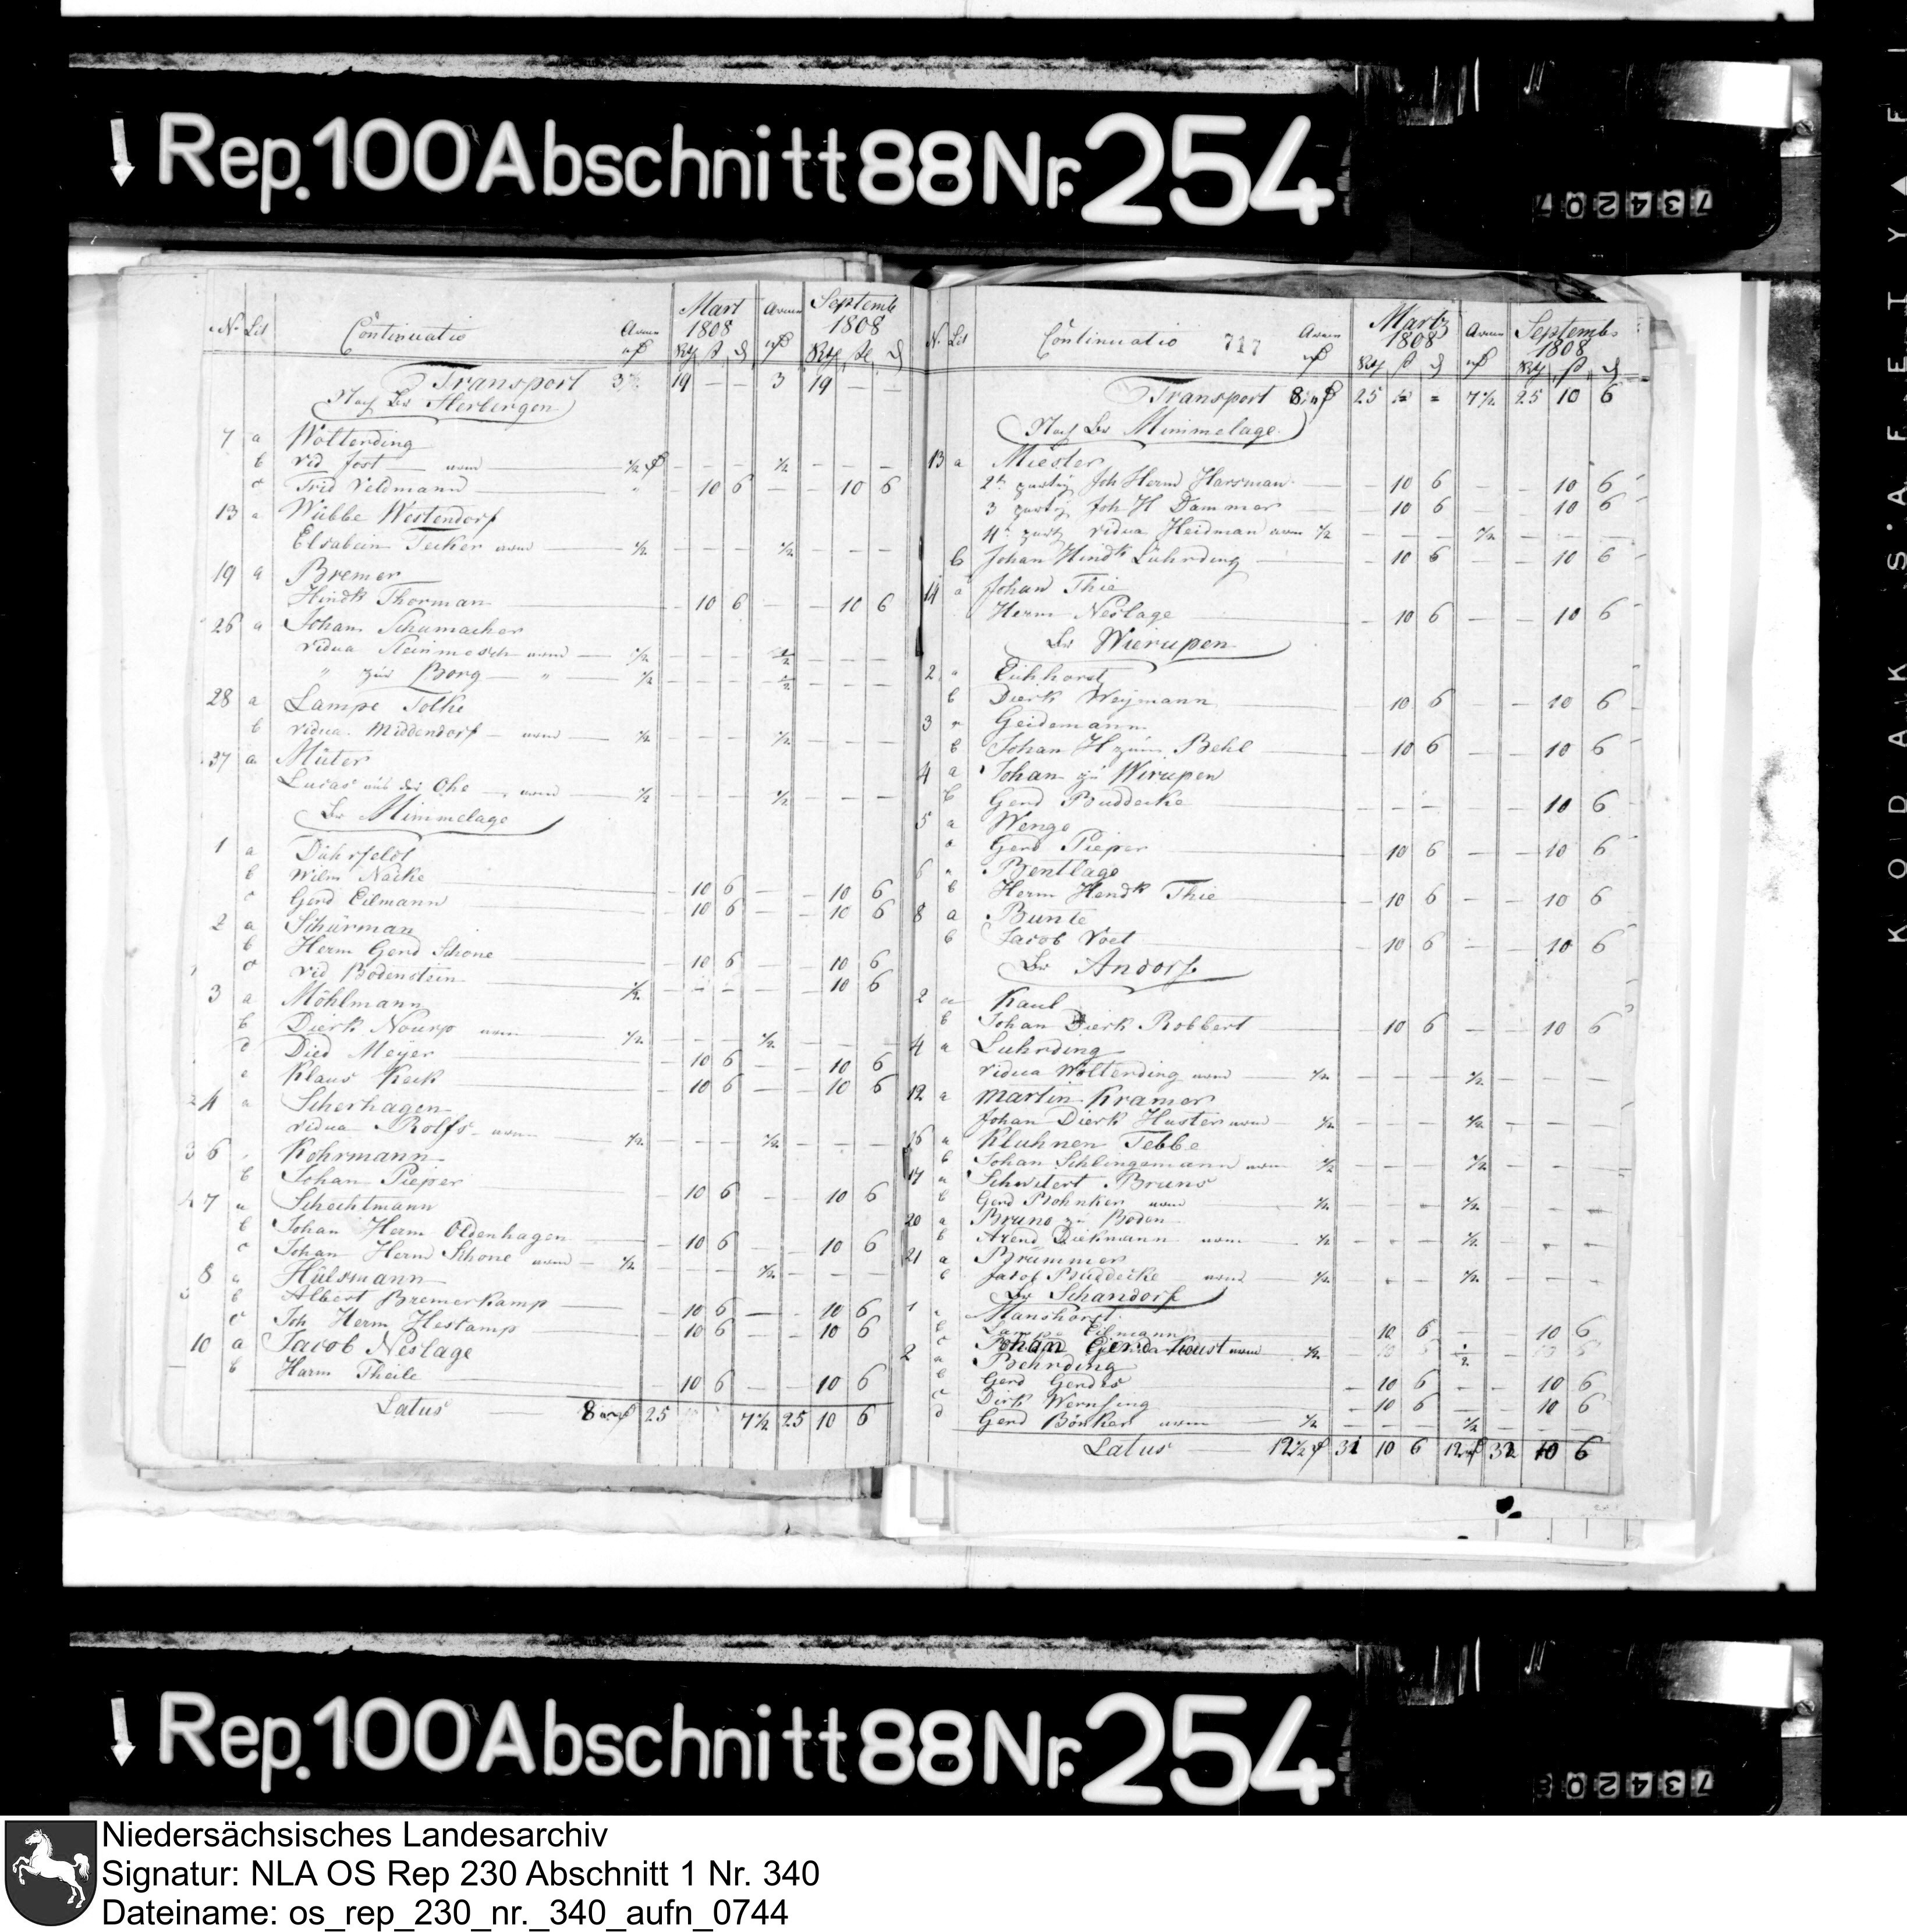 Rep. 100 Abschnitt 88 Nr. 254
734207
N. Lit Continuatio Mart 1808 Septemb 1808
Transport 19 — — 3 19 — —
Herbergen
7 a Wolterding
b vid Jost ½ ½
c Veldmann 10 6 10 6
13 a Wübbe Westendorf
Elsabein ½ ½
19 a Bremer
Hindk Thorman 10 6 10 6
26 a Johan Schumacher
vidua ½ ½
" zur Borg " ½ ½
28 a Lampe Tolke
b vidua Middendorf ½ ½
37 a Müter
Lucas Ohe ½ ½
Br Mimmelage
1 a Dührfeldt
b Wilm Nacke 10 6 10 6
c Gerd Eilmann 10 6 10 6
2 a Schürman
b Herm Gerd Schone 10 6 10 6
c vid Bodenstein ½ 10 6
3 a Möhlmann
b Dierk ½ ½
Died Meyer 10 6 10 6
Klaus Keck 10 6 10 6
4 a Scherhagen
vidua Rolfs ½ ½
6 Kohrmann
b Johan Pieper 10 6 10 6
7 a Schechtmann
b Johan Herm Oldenhagen 10 6 10 6
c Johan Herm Schone ½ ½
8 a Hülsmann
b Albert Bremerkamp 10 6 10 6
c Joh Herm Hestamp 10 6 10 6
10 a Jacob Neslage
b Harm Theile 10 6 10 6
Latus 8 25 7½ 25 10 6
N. Lit Continuatio 717 Martz 1808 Septembr 1808
Transport 8 25 7½ 25 10 6
Mimmelage
13 a Miester
2t Joh Herm Harsman 10 6 10 6
3 Joh H Dammer 10 6 10 6
4t vidua Heidman ½ ½
b Johan Hindk Lührding 10 6 10 6
14 a Johan Thie
Herm Neslage 10 6 10 6
Br Wierupen
2 a Eichhorst
b Dierk Weymann 10 6 10 6
3 Geidemann
b Johan H zum Behl 10 6 10 6
4 a Johan zu Wirupen
b Gerd Buddecke 10 6
5 a Wenge
Gerd Pieper 10 6 10 6
6 Bentlage
b Herm Hendk Thie 10 6 10 6
8 a Bunte
b Jacob Voet 10 6 10 6
Br Andorf
2 a Kaul
b Johan Dierk Robbert 10 6 10 6
4 a Luhrding
vidua Wolterding ½ ½
12 a Martin Kramer
Johan Dierk Huster ½ ½
16 a Kluhnen Tebbe
b Johan Schlingemann ½ ½
17 a Schwitert Bruns
b Gerd Bohnker ½ ½
20 a Bruns zu Boden
b Arend Diekmann ½ ½
21 a Brümmer
b Jacob Buddecke ½ ½
Br Schandorf
1 a Manshorst
b Eilmann 10 6 10 6
c Johan Gerd ½ ½
2 a Behrding
b Gerd Gerdes 10 6 10 6
c Dirk Wernsing 10 6 10 6
d Gerd Bönker ½ ½
Latus 12½ 31 10 6 12 32 10 6
Rep. 100 Abschnitt 88 Nr. 254
KODAK SAFETY
Niedersächsisches Landesarchiv
Signatur: NLA OS Rep 230 Abschnitt 1 Nr. 340
Dateiname: os_rep_230_nr._340_aufn_0744